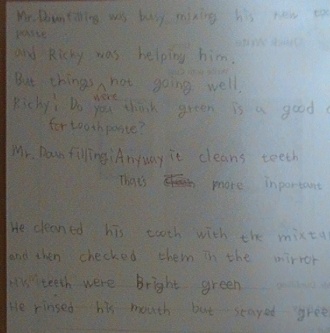 Mr. Downfilling was busy mixing his new
paste
and Ricky was helping him.
But things were not going well.
Ricky: Do you think green is a good
for toothpaste?
Mr. Downfilling: Anyway it cleans teeth
That's more inportant
He cleaned his tooth with the
and then checked them in the mirror
His teeth were bright green
He rinsed his mouth but stayed